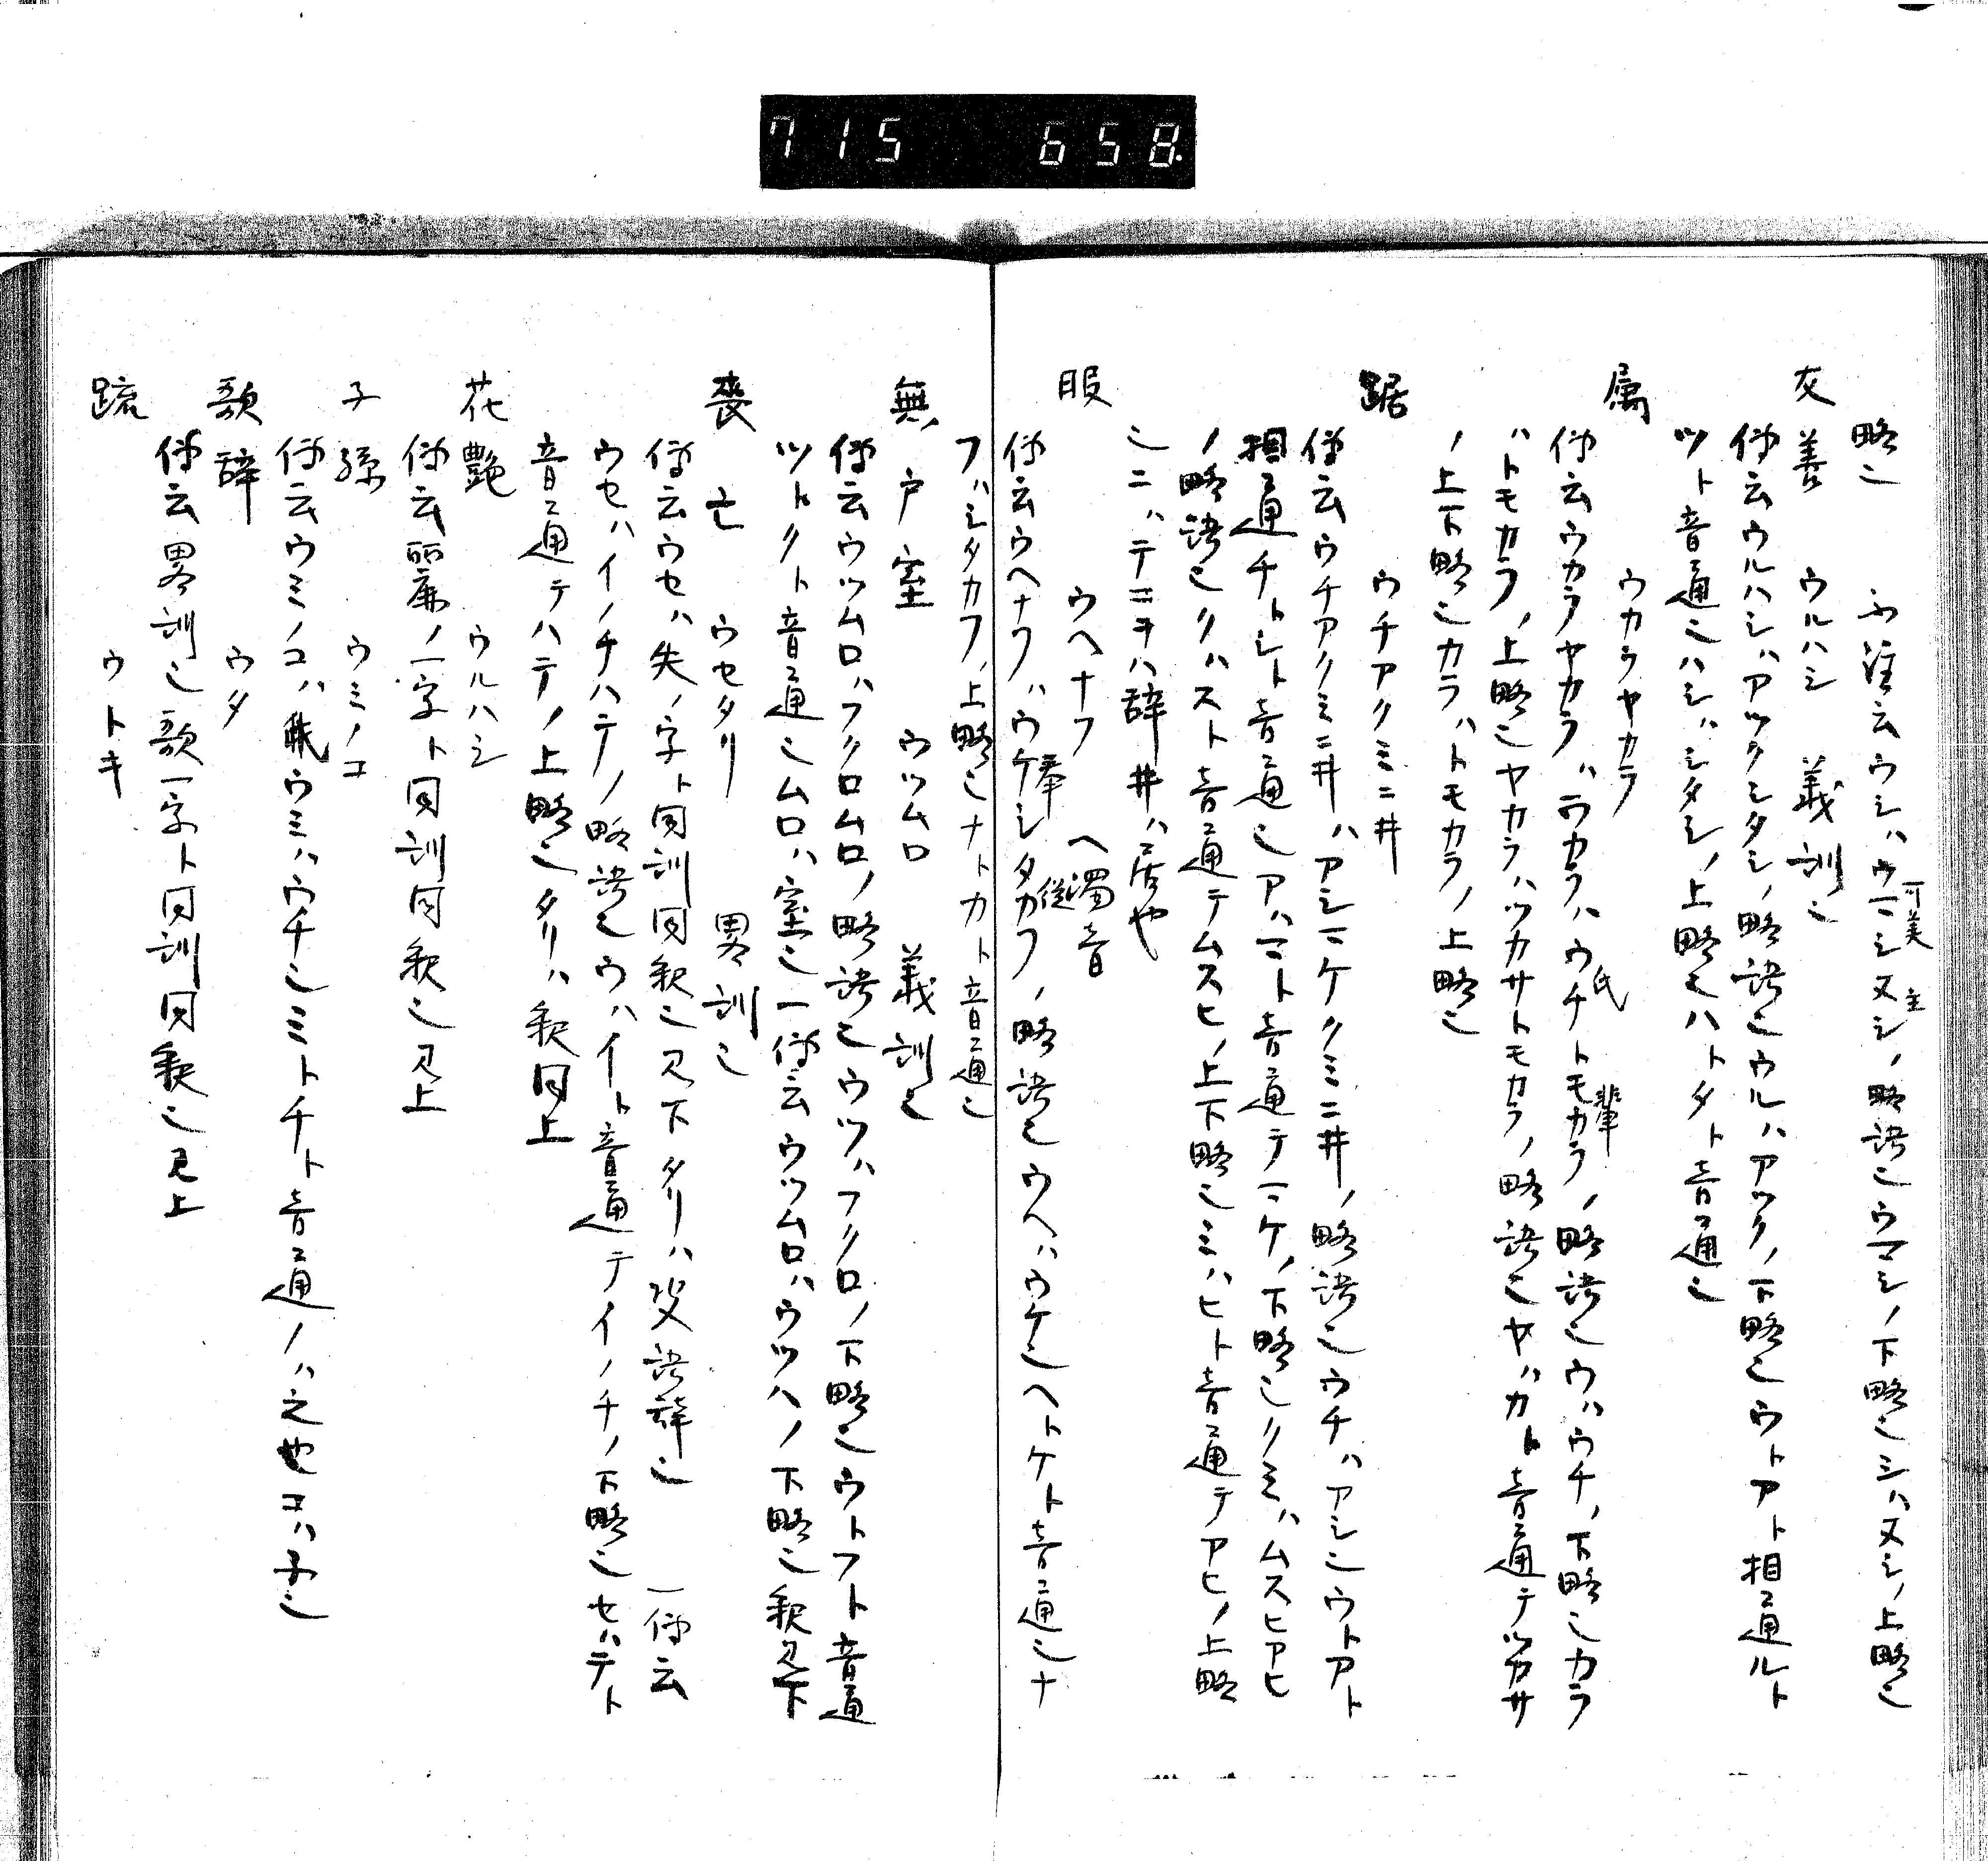 715 658.
略也 ふ注云ウシハウマシヌシノ略語也ウマシノ下略也シハヌシノ上略也
可美
主
友善 ウルハシ 義訓也
師云ウルハシハアツクシタシノ略語也ウルハアツクノ下略也ウトアト相通ルト
ツト音通也ハシハシタシノ上略也ハトタト音通也
属 ウカラヤカラ
師云ウカラヤカラハウカラハウチトモカラノ略語也ウハウチノ下略也カラ
氏
輩
ハトモカラノ上略也ヤカラハツカサトモカラノ略語也ヤハカト音通テツカサ
ノ上下略也カラハトモカラノ上略也
踞 ウチアクミニ井
師云ウチアクミニ井ハアシマケクミニ井ノ略語也ウチハアシ也ウトアト
相通チトシト音通也アハマト音通テマケノ下略也クミハムスヒアヒ
ノ略語也クハスト音通テムスヒノ上下略也ミハヒト音通テアヒノ上略
也ニハテニヲハ辞井ハ居や
服 ウヘナフ ヘ濁音
師云ウヘナフハウケシタカフノ略語也ウヘハウケ也ヘトケト音通也ナ
奉
従
フハシタカフノ上略也ナトカト音通也
無戸室 ウツムロ 義訓也
師云ウツムロハフクロムロノ略語也ウツハフクロノ下略也ウトフト音通
ツトクト音通也ムロハ室也一師云ウツムロハウツハノ下略也釈見下
喪亡 ウセタリ 畧訓也
師云ウセハ失ノ字ト同訓同釈也見下タリハ助語辞也 一師云
ウセハイノチハテノ略語也ウハイト音通テイノチノ下略也セハテト
音通テハテノ上略也タリハ釈同上
花艶 ウルハシ
師云麗ノ一字ト同訓同釈也見上
子孫 ウミノコ
師云ウミノコハ職ウミハウチ也ミトチト音通ノハ之也コハ子也
歌辞 ウタ
師云畧訓也歌一字ト同訓同釈也見上
疏 ウトキ